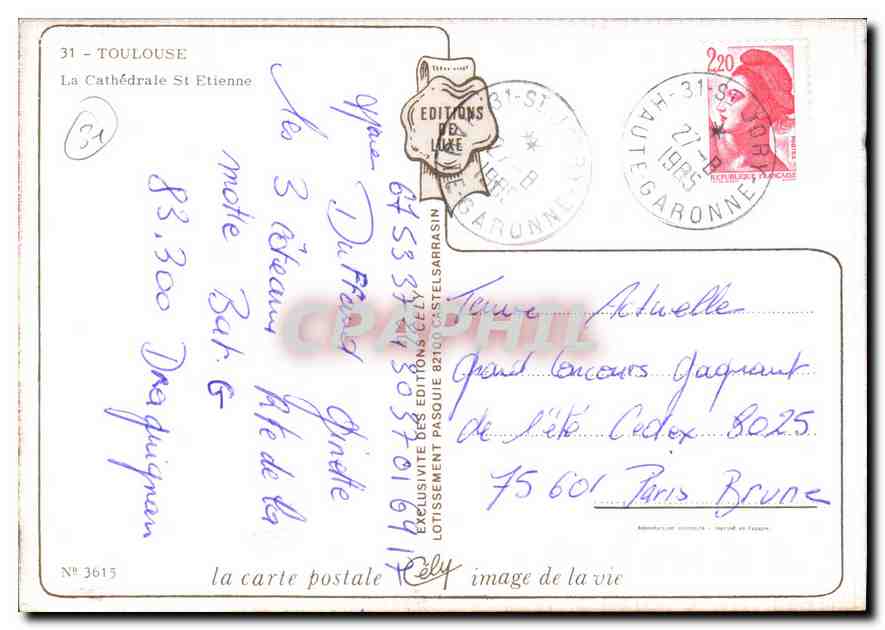 31 - TOULOUSE
La Cathédrale St Etienne
31
EDITIONS
DE
LUXE
31-ST JORY
27-8
1985
HAUTE-GARONNE
2,20
REPUBLIQUE FRANCAISE
POSTES
31-ST JORY
27-8
1985
HAUTE-GARONNE
Ginette
les 3 côteaux Rte de la
motte Bat. G
83.300 Draguignan
EXCLUSIVITE DES EDITIONS CELY
LOTISSEMENT PASQUIE 82100 CASTELSARRASIN
CPAPHIL
Femme Actuelle
grand concours gagnant
de l'été Cedex 8025
75601 Paris Brune
Nº 3615
la carte postale Cély image de la vie